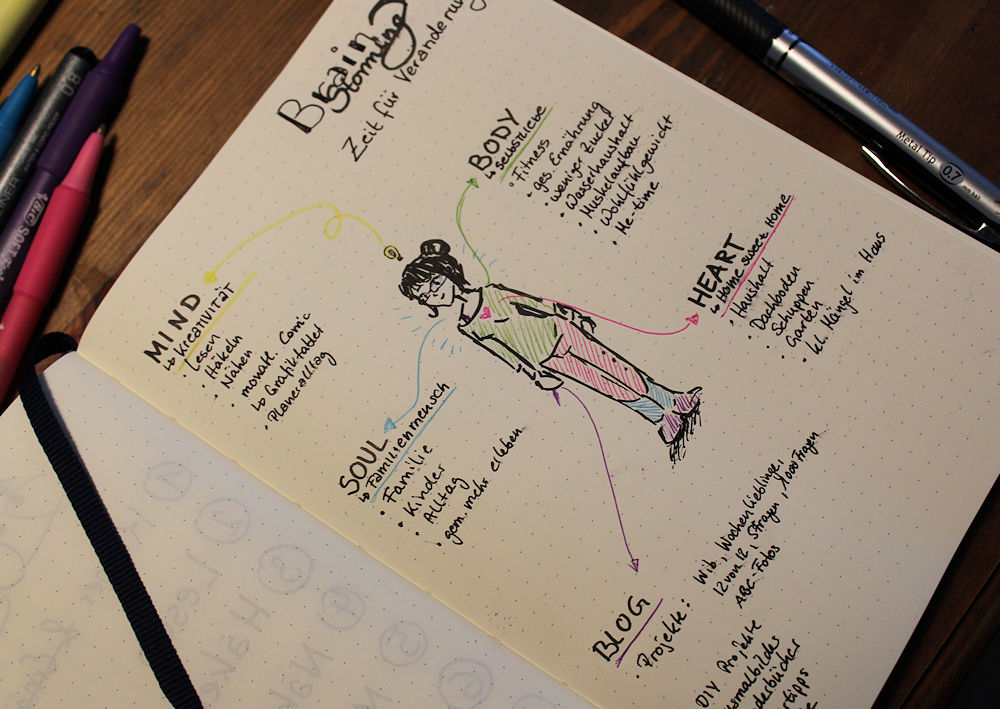 Brain
Storming
Zeit für Veränderung
BODY
↳ selbstliebe
• Fitness
• ges. Ernährung
• weniger Zucker
• Wasserhaushalt
• Muskelaufbau
• Wohlfühlgewicht
• Me-time
HEART
↳ Home sweet Home
• Haushalt
• Dachboden
• Schuppen
• Garten
• kl. Mängel im Haus
MIND
↳ Kreativität
• Lesen
• Häkeln
• Nähen
• monatl. Comic
↳ Grafiktablet
• Planeralltag
SOUL
↳ Familienmensch
• Familie
• Kinder
• Alltag
• gem. mehr erleben
BLOG
• Projekte: Wib, Wochenlieblinge,
12 von 12, 5 Fragen, 1000 Fragen
ABC-Fotos
DIY Projekte
Metal Tip 0.7
0.8